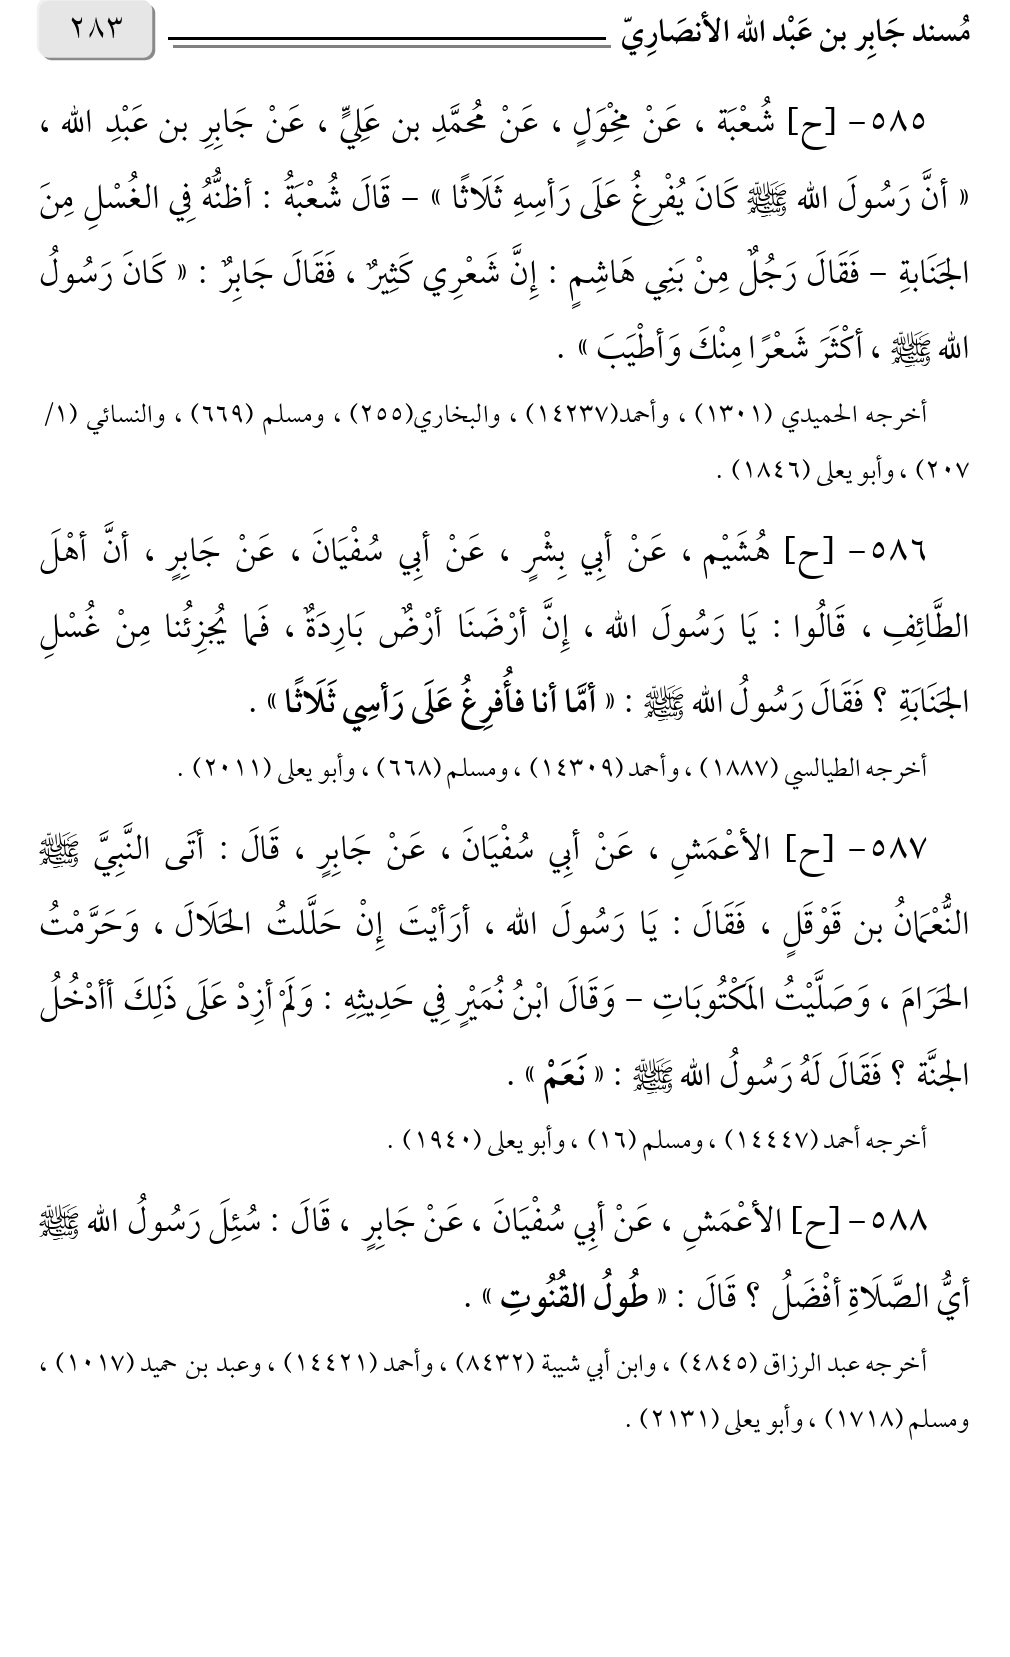 مُسند جَابِر بن عَبْد الله الأنصَارِيّ ٢٨٣
٥٨٥- [ح] شُعْبَة ، عَنْ مِخْوَلٍ ، عَنْ مُحمَّدِ بن عَلِيٍّ ، عَنْ جَابِرِ بن عَبْدِ الله ،
« أنَّ رَسُولَ الله ﷺ كَانَ يُفْرِغُ عَلَى رَأسِهِ ثَلَاثًا » – قَالَ شُعْبَةُ : أظنُّهُ فِي الغُسْلِ مِنَ
الجَنَابةِ – فَقَالَ رَجُلٌ مِنْ بَنِي هَاشِمٍ : إِنَّ شَعْرِي كَثِيرٌ ، فَقَالَ جَابِرٌ : « كَانَ رَسُولُ
الله ﷺ ، أكْثَرَ شَعْرًا مِنْكَ وَأطْيَبَ » .
أخرجه الحميدي (١٣٠١) ، وأحمد(١٤٢٣٧) ، والبخاري(٢٥٥) ، ومسلم (٦٦٩) ، والنسائي (١/
٢٠٧) ، وأبو يعلى (١٨٤٦) .
٥٨٦- [ح] هُشَيْم ، عَنْ أبِي بِشْرٍ ، عَنْ أبِي سُفْيَانَ ، عَنْ جَابِرٍ ، أنَّ أهْلَ
الطَّائِفِ ، قَالُوا : يَا رَسُولَ الله ، إِنَّ أرْضَنَا أرْضٌ بَارِدَةٌ ، فَما يُجزِئُنا مِنْ غُسْلِ
الجَنَابَةِ ؟ فَقَالَ رَسُولُ الله ﷺ : « أمَّا أنا فأُفرِغُ عَلَى رَأسِي ثَلَاثًا » .
أخرجه الطيالسي (١٨٨٧) ، وأحمد (١٤٣٠٩) ، ومسلم (٦٦٨) ، وأبو يعلى (٢٠١١) .
٥٨٧- [ح] الأعْمَشِ ، عَنْ أبِي سُفْيَانَ ، عَنْ جَابِرٍ ، قَالَ : أتَى النَّبِيَّ ﷺ
النُّعْمَانُ بن قَوْقَلٍ ، فَقَالَ : يَا رَسُولَ الله ، أرَأيْتَ إِنْ حَلَّلتُ الحَلَالَ ، وَحَرَّمْتُ
الحَرَامَ ، وَصَلَّيْتُ المَكْتُوبَاتِ – وَقَالَ ابْنُ نُمَيْرٍ فِي حَدِيثِهِ : وَلَمْ أزِدْ عَلَى ذَلِكَ أأدْخُلُ
الجنَّة ؟ فَقَالَ لَهُ رَسُولُ الله ﷺ : « نَعَمْ » .
أخرجه أحمد (١٤٤٤٧) ، ومسلم (١٦) ، وأبو يعلى (١٩٤٠) .
٥٨٨- [ح] الأعْمَشِ ، عَنْ أبِي سُفْيَانَ ، عَنْ جَابِرٍ ، قَالَ : سُئِلَ رَسُولُ الله ﷺ
أيُّ الصَّلَاةِ أفْضَلُ ؟ قَالَ : « طُولُ القُنُوتِ » .
أخرجه عبد الرزاق (٤٨٤٥) ، وابن أبي شيبة (٨٤٣٢) ، وأحمد (١٤٤٢١) ، وعبد بن حميد (١٠١٧) ،
ومسلم (١٧١٨) ، وأبو يعلى (٢١٣١) .